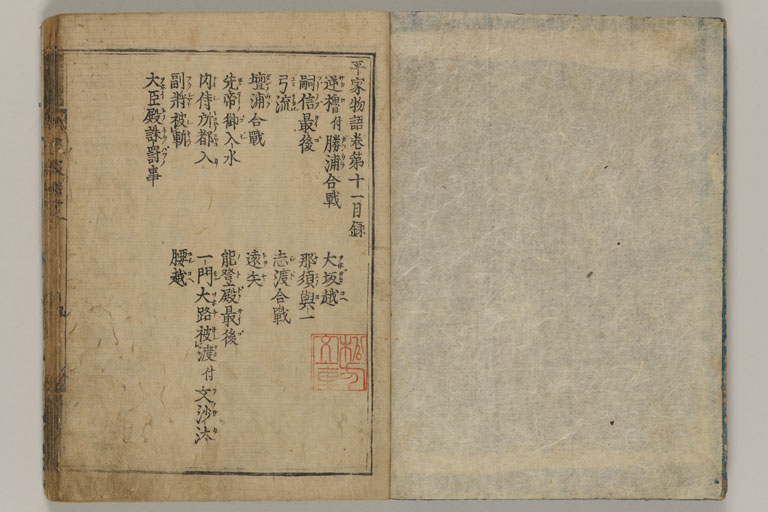 平家物語卷第十一目録
逆櫓付勝浦合戰
大坂越
嗣信最後
那須與一
弓流
志渡合戰
壇浦合戰
遠矢
先帝御入水
能登殿最後
内侍所都入
一門大路被渡付文沙汰
副將被斬
腰越
大臣殿誅罰事